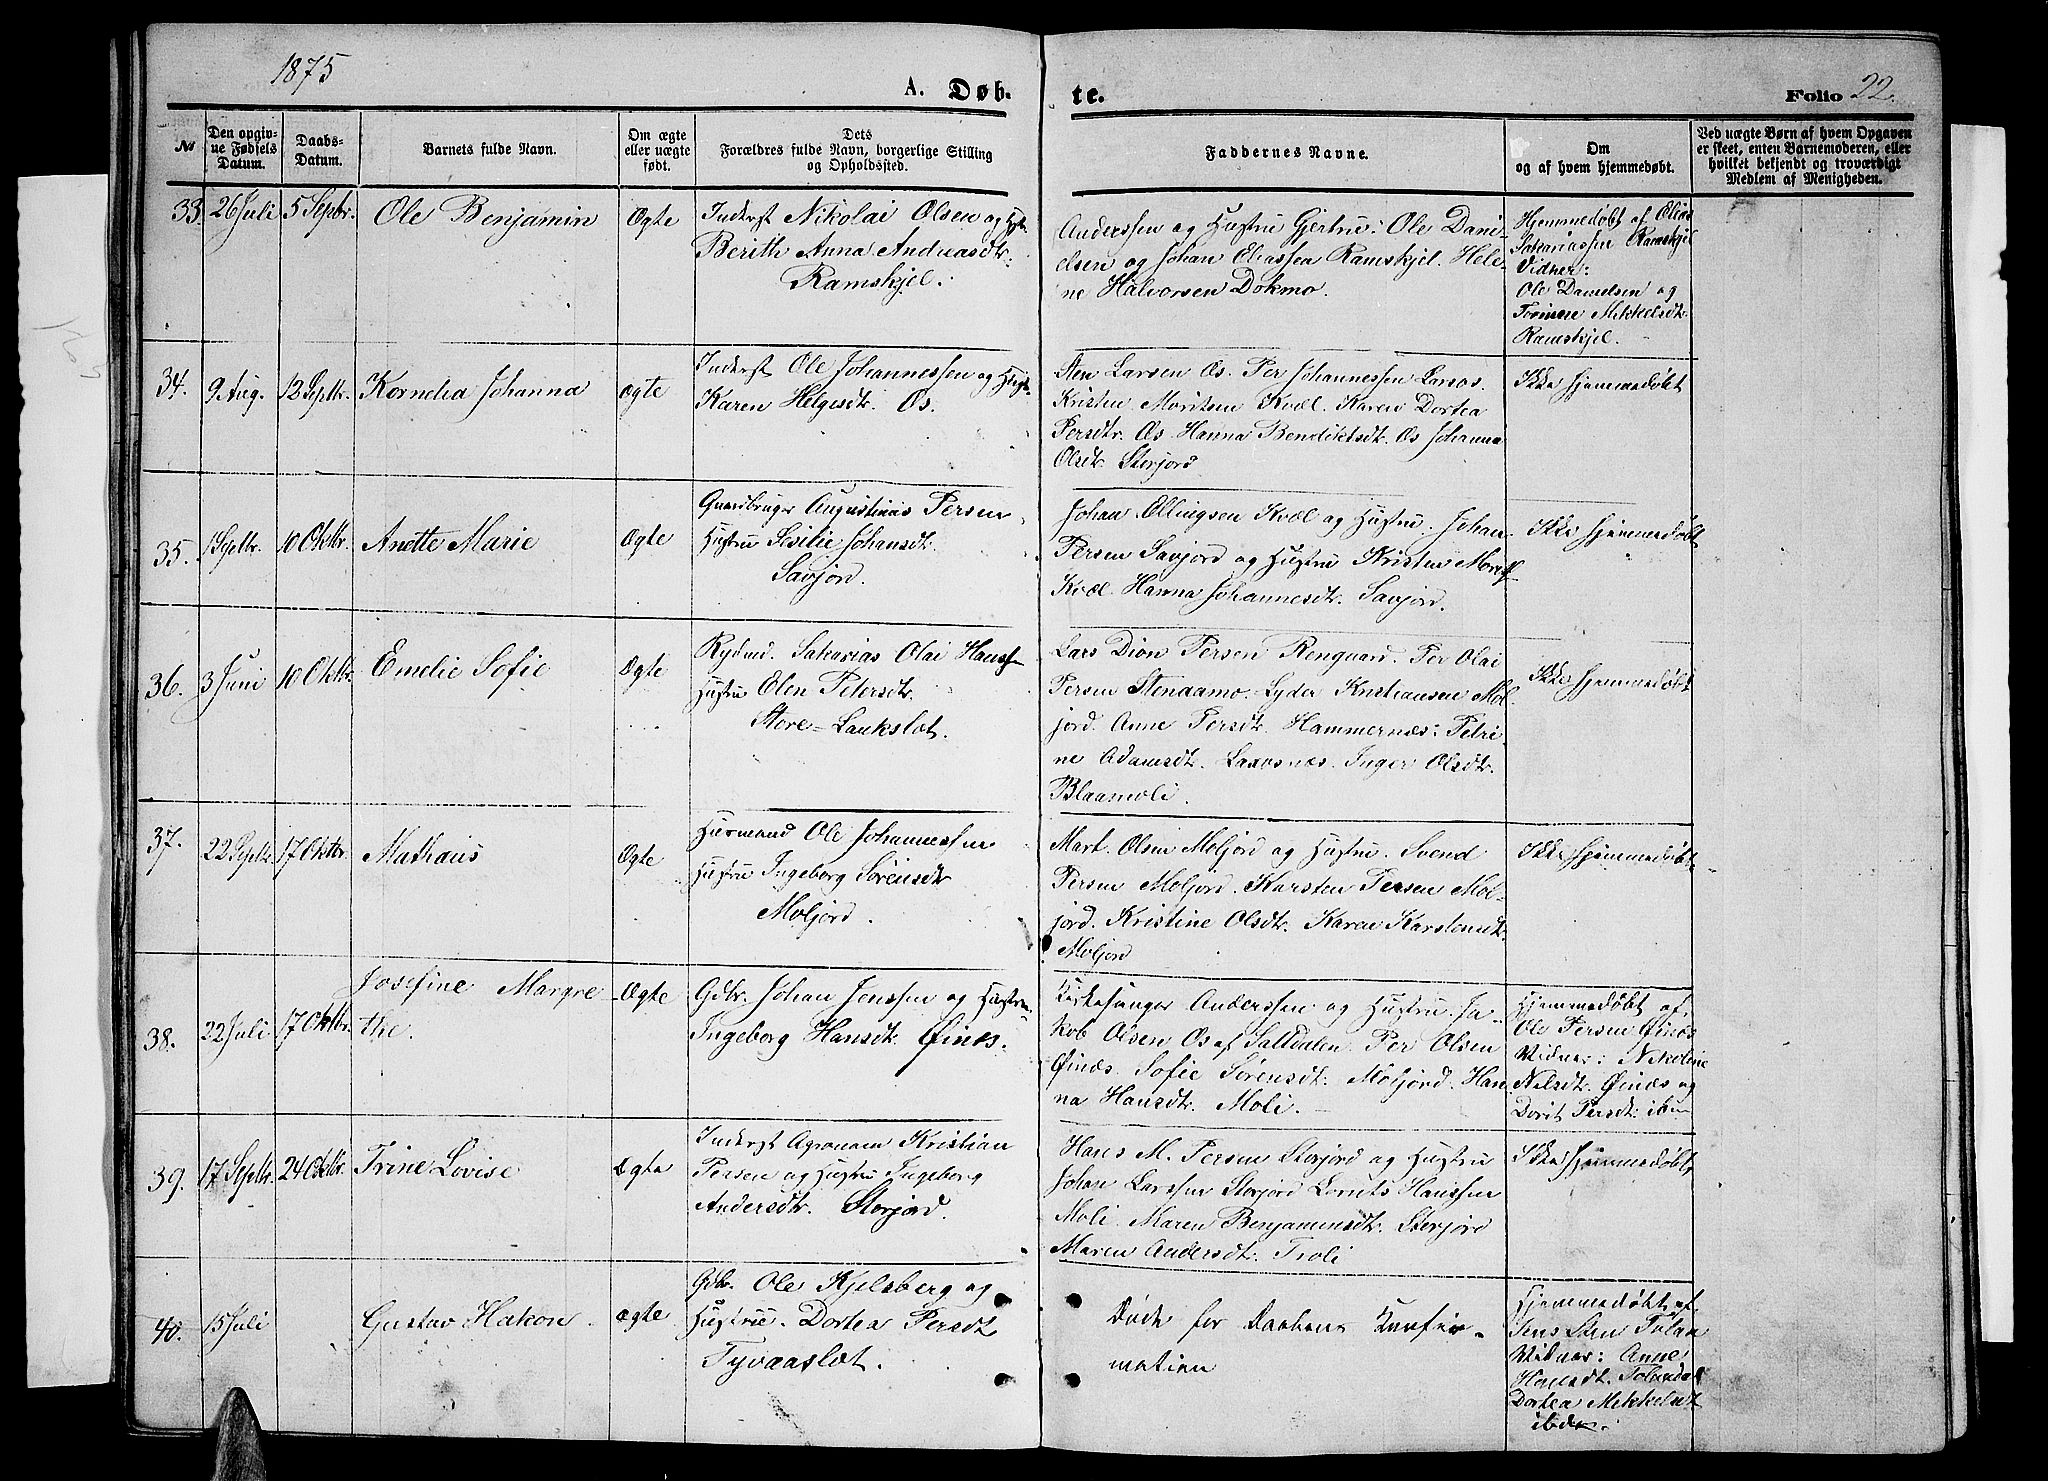 1875
A. Døb-
te.
Folio 22.
№
Den opgiv-
ne Fødsels
Datum.
Daabs-
Datum.
Barnets fulde Navn.
Om ægte
eller uægte
født.
Dets
Forældres fulde Navn, borgerlige Stilling
og Opholdssted.
Faddernes Navne.
Om
og af hvem hjemmedøbt.
Ved uægte Børn af hvem Opgaven
er skeet, enten Barnemoderen, eller
hvilket bekjendt og troværdigt
Medlem af Menigheden.
33.
26 Juli
5 Septbr.
Ole Benjamin
Ægte
Inderst Nikolai Olsen og Hstr.
Berith Anna Andreasdtr.
Ramskjel.
Anderssen og Hustru Gjertru: Ole Dani-
elsen og Johan Eliassen Ramskjel. Hele-
ne Halvorsen Dokmo.
Hjemmedøbt af Elias
Sakariassen Ramskjel
Vidner:
Ole Danielsen og
Mikkelsdtr.
Ramskjel.
34.
9 Aug.
12 Septbr.
Kornelia Johanna
Ægte
Inderst Ole Johannessen og Hustr.
Karen Helgesdtr. Os.
Sten Larsen Os. Per Johannessen Larsos.
Kristen Moritsen Kvæl. Karen Dortea
Persdtr. Os. Hanna Bendiktsdtr. Os Johanna
Olsdtr. Storjord
Ikke hjemmedøbt
35.
1 Septbr.
10 Oktbr.
Anette Marie
Ægte
Gaardbruger Augustinus Persen
Hustru Sisilie Johansdtr.
Savjord.
Johan Ellingsen Kvæl og Hustru. Johan
Persen Savjord og Hustru Kristen Morits.
Kvæl. Hanna Johannesdtr. Savjord.
Ikke hjemmedøbt
36.
3 Juni
10 Oktbr.
Emelie Sofie
Ægte
Rydnd. Sakarias Olai Hanss-
Hustru Elen Petersdtr.
Store-Laukslet.
Lars Dion Persen Rengaard. Per Olai
Persen Stenaamo. Lyder Kristiansen Mol-
jord. Anne Persdtr. Hammernæs: Petri-
ne Adamsdtr. Laxosnæs. Inger Olsdtr.
Blaamoli.
Ikke hjemmedøbt
37.
22 Septbr.
17 Oktbr.
Mathæus
Ægte
Husmand Ole Johannessen
Hustru Ingeborg Sørensdtr
Moljord.
Mart. Olsen Moljord og Hustru. Svend
Persen Moljord. Karsten Persen Mol-
jord. Kristine Olsdtr. Karen Karstensdtr.
Moljord
Ikke hjemmedøbt
38.
22 Juli
17 Oktbr.
Josefine Margre
the.
Ægte
Gdbr. Johan Jenssen og Hustru
Ingeborg Hansdtr. Øinæs.
Kirkesanger Anderssen og Hustru. Ja-
kob Olsen Os af Saltdalen. Per Olsen
Øinæs. Sofie Sørensdtr. Moljord. Han-
na Hansdtr. Moli.
Hjemmedøbt af
Ole Persen Øinæs
Vidner: Nikoline
Nilsdtr. Øinæs og
Dorit Persdtr. ibm
39.
17 Septbr.
24 Oktbr.
Trine Lovise
Ægte
Inderst Agronom Kristian
Persen og Hustru Ingeborg
Andersdtr. Storjord.
Hans M. Persen Storjord og Hustru
Johan Larssen Storjord Lorents Hanssen
Moli. Maren Benjaminsdtr. Storjord
Maren Andersdtr. Troli
Ikke hjemmedøbt
40.
15 Juli
Gustav Hakon.
Ægte
Gdbr. Ole Kjelsberg og
Hustrue. Dortea Persdt
Tvvaaslet.
Døde før Daabens Konfir-
mation
Hjemmedøbt af
Jens
Vidner: Anne
Dortea Mikkelsdt
ibdm.